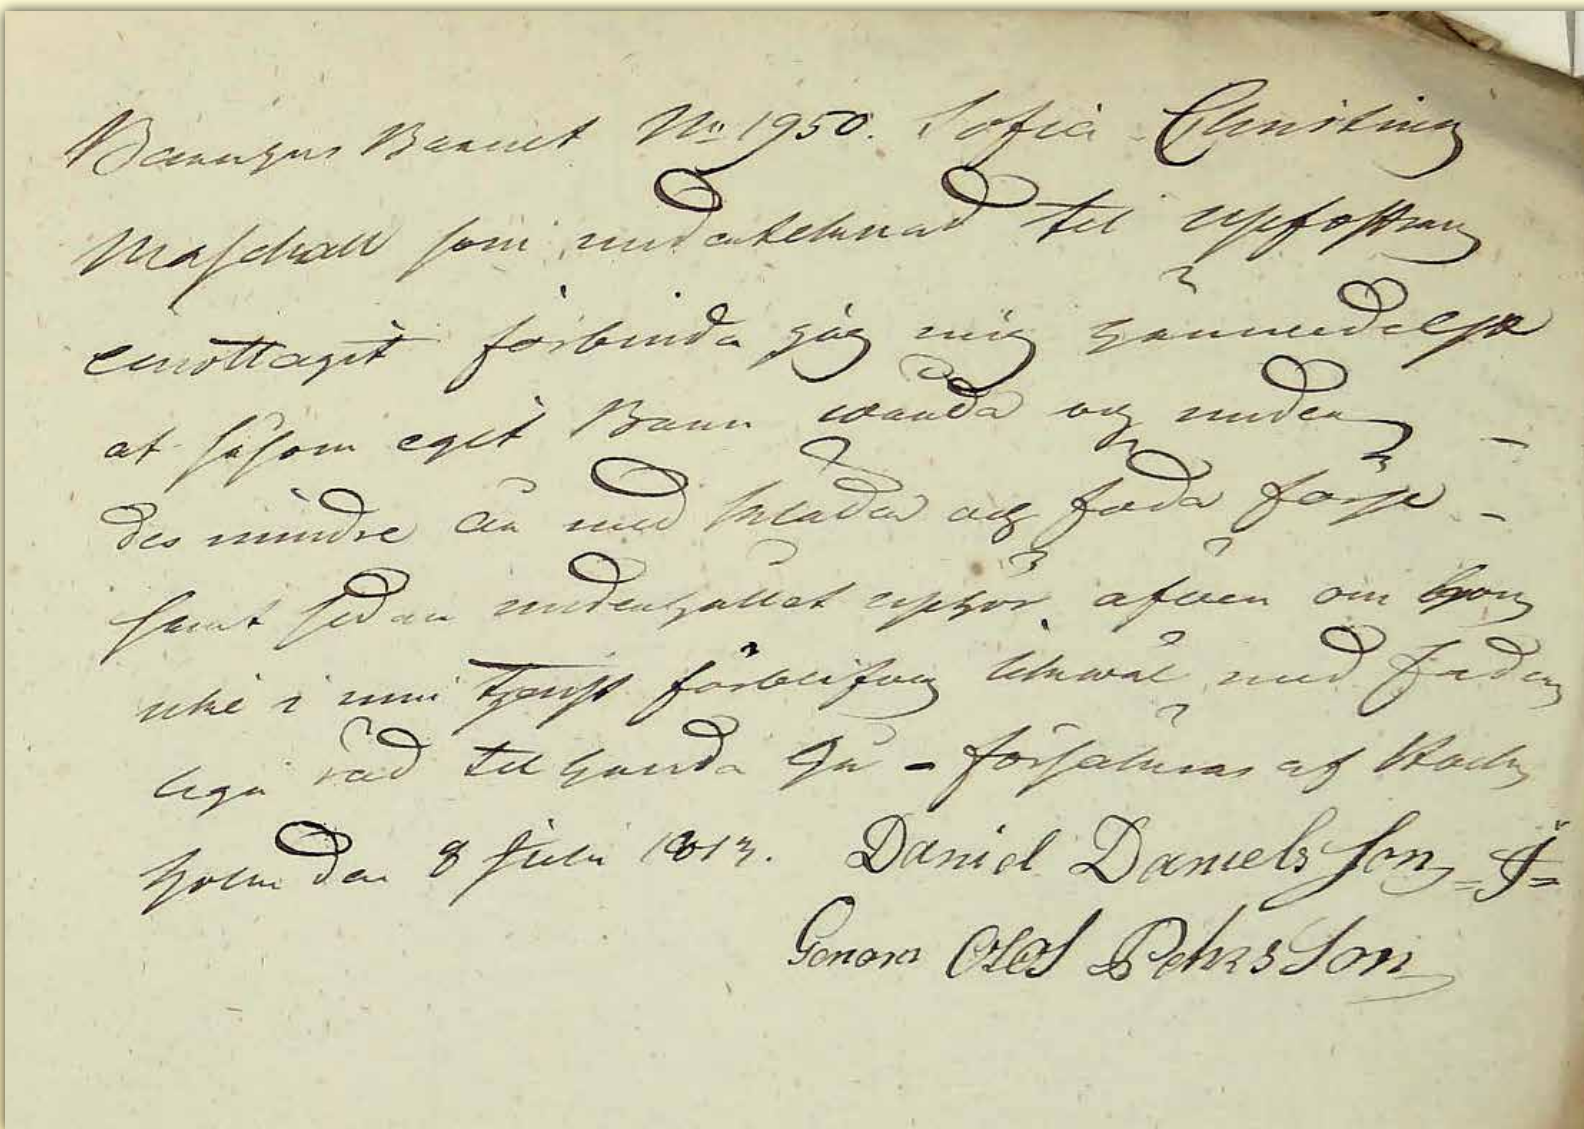 Barnhus Barnet No 1950. Sofia Christina
Maschall som underteknad til upfostran
emottagit förbinder jag mig härmedelst
at såsom eget Barn wårda og underv
des mindre än med kläder og föda förse
samt sedan underhållet uphör äfven om hon
icke i min tjenst förblifver likwäl med fader
liga råd til handa gå - försäkras af Stock
holm den 8 Juli 1813. Daniel Danielsson
Genom Olof Pehrs Son